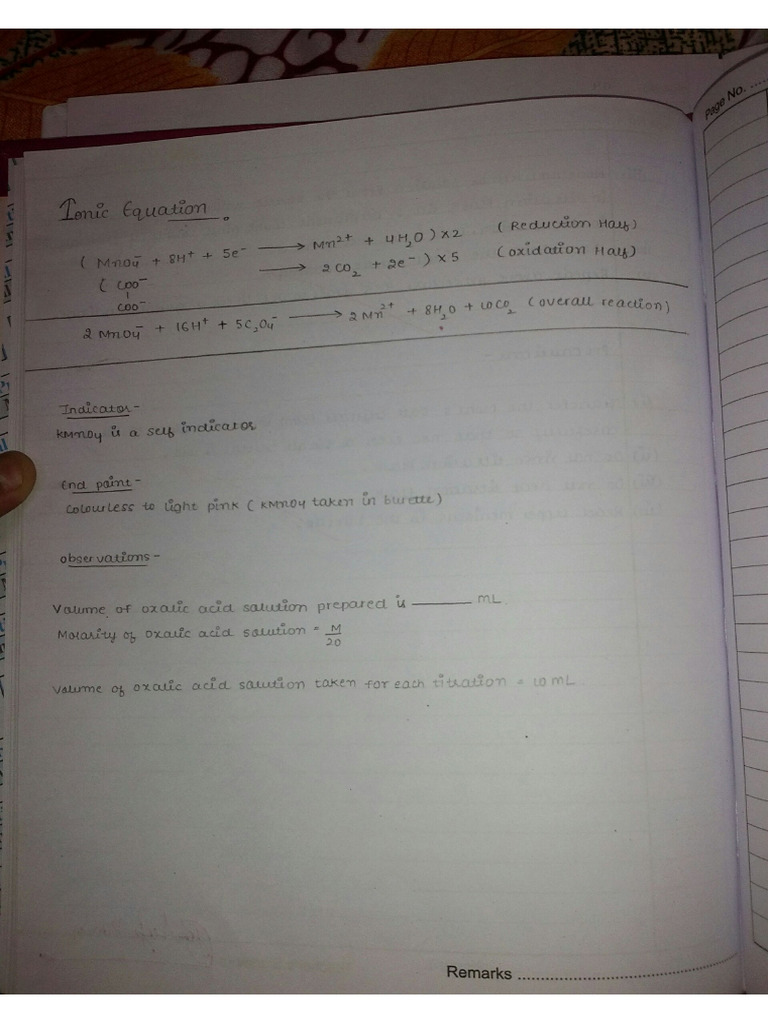 Page No. ....
Ionic Equation.
( MnO4⁻ + 8H⁺ + 5e⁻ ⟶ Mn²⁺ + 4H₂O ) ×2 ( Reduction Half)
( COO⁻ ⟶ 2CO₂ + 2e⁻ ) × 5 (oxidation Half)
COO⁻
2 MnO4⁻ + 16H⁺ + 5C₂O4⁻ ⟶ 2 Mn²⁺ + 8H₂O + 10CO₂ (overall reaction)
Indicator -
KMnO4 is a self indicator
End point -
Colourless to light pink ( KMnO4 taken in burette)
observations -
Volume of oxalic acid solution prepared is ______ mL.
Molarity of oxalic acid solution = M/20
Volume of oxalic acid solution taken for each titration = 10 mL.
Remarks ....................................